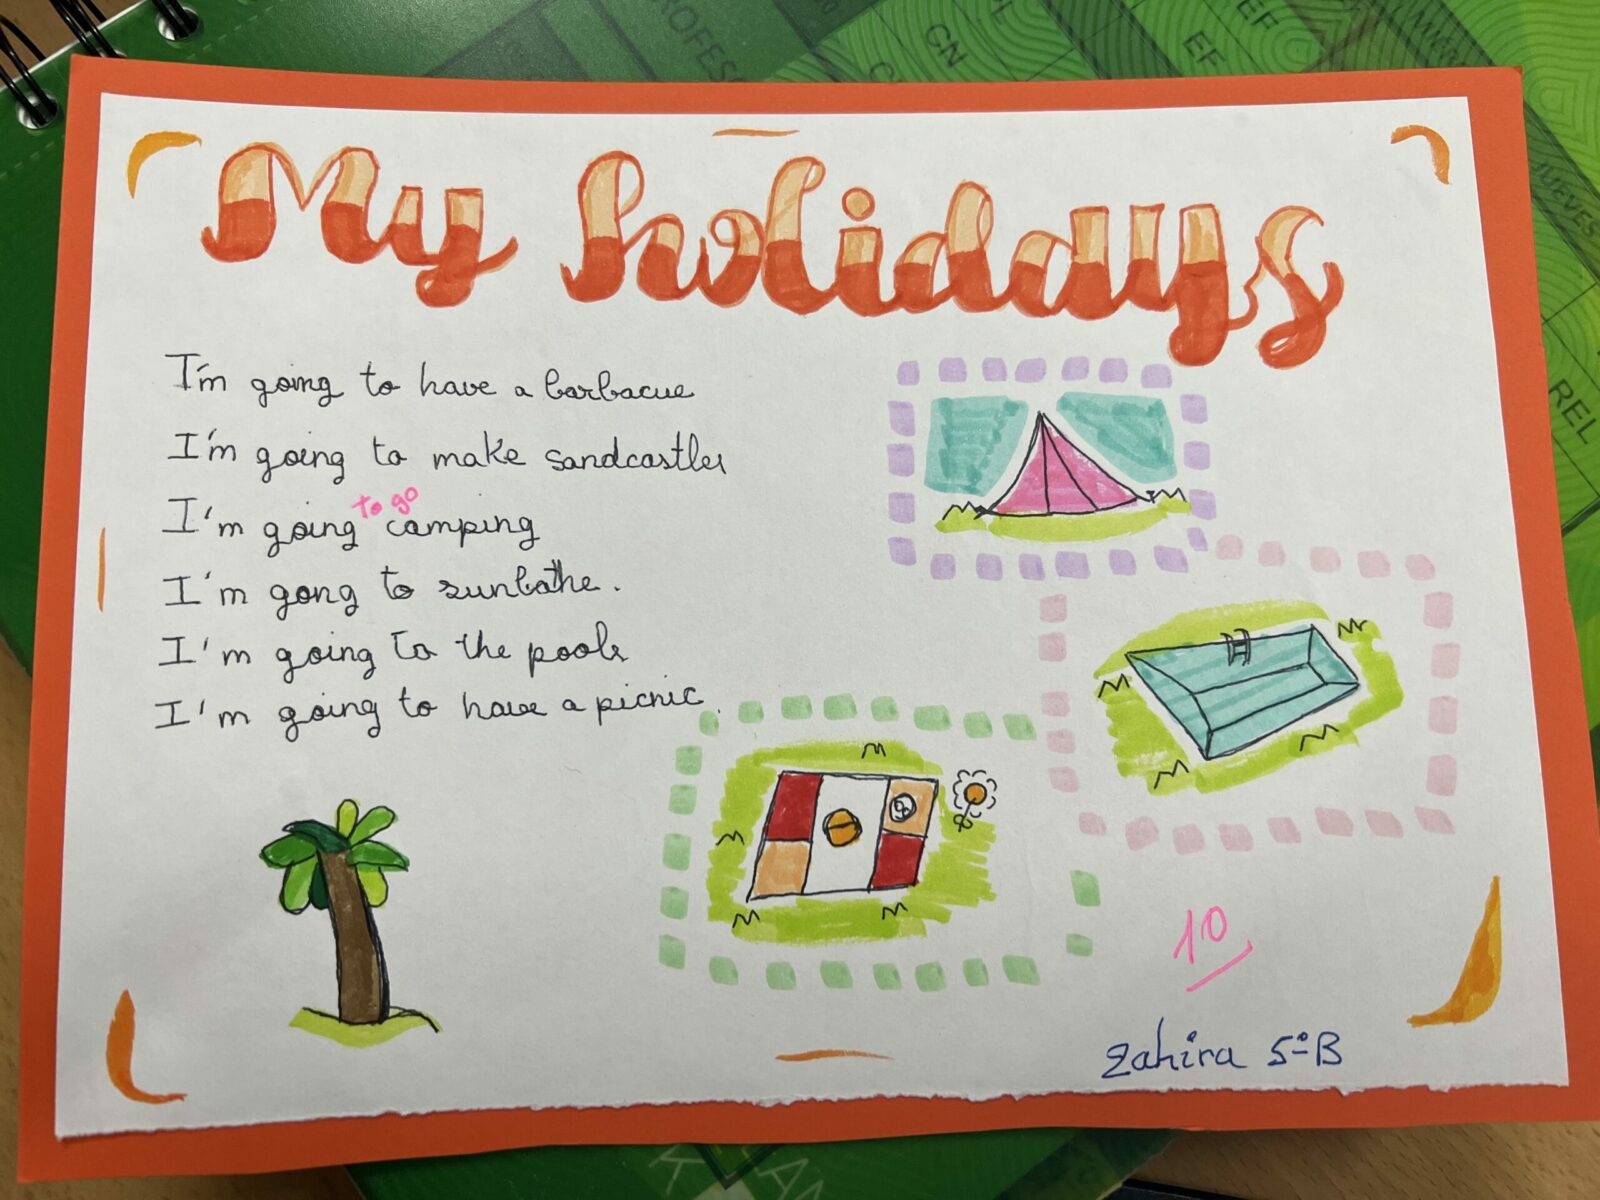 PROFES
CN
EF
EF
JUEVES
REL
My holidays
I'm going to have a barbacue
I'm going to make sandcastles
to go
I'm going camping
I'm gong to sunbathe.
I'm going to the pools
I'm going to have a picnic.
10
Zahira 5º B